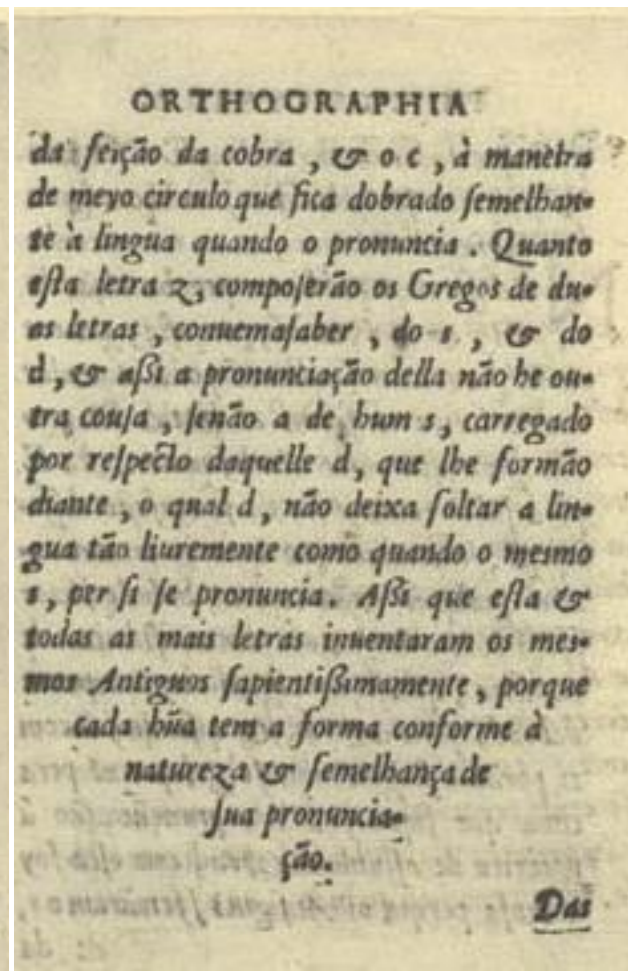 ORTHOGRAPHIA
da feição da cobra , & o c , à maneira
de meyo circulo que fica dobrado ſemelhan-
te à lingua quando o pronuncia . Quanto
eſta letra z, compoſerão os Gregos de du-
as letras , conuemaſaber , do s , & do
d , & aßi a pronunciação della não he ou-
tra couſa , ſenão a de hum s , carregado
por reſpecto daquelle d , que lhe formão
diante , o qual d , não deixa ſoltar a lin-
gua tão liuremente como quando o meſmo
s , per ſi ſe pronuncia . Aßi que eſta &
todas as mais letras inuentaram os meſ-
mos Antiguos ſapientißimamente , porque
cada hũa tem a forma conforme à
natureza & ſemelhança de
ſua pronuncia-
ção.
Das